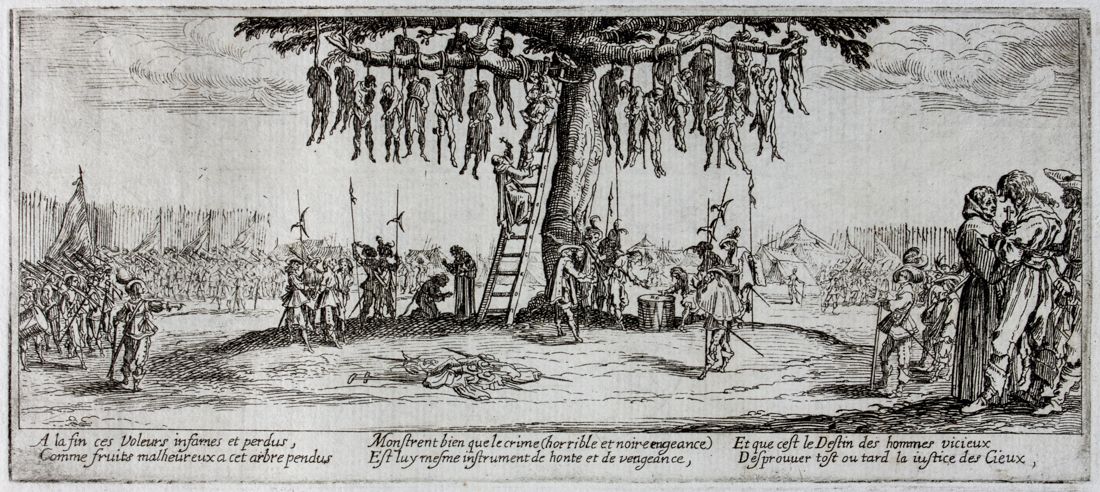 A la fin ces Voleurs infames et perdus,
Comme fruits malheureux a cet arbre pendus
Monstrent bien que le crime (horrible et noire engeance)
Est luy mesme instrument de honte et de vengeance,
Et que cest le Destin des hommes vicieux
Desprouuer tost ou tard la iustice des Cieux,